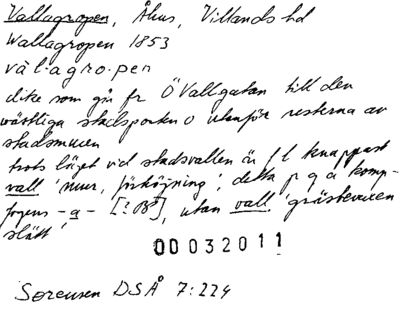 Vallagropen, Åhus, Villands hd
Wallagropen 1853
val·agro·pen
dike som går fr Ö Vallgatan till den
västliga stadsporten o utanför resterna av
stadsmuren
trots läget vid stadsvallen är f l knappast
vall 'mur, förhöjning', detta p g a komp-
fogens -a- [? B], utan vall 'gräsbevuxen
slätt'
00032011
Sørensen DSÅ 7:224